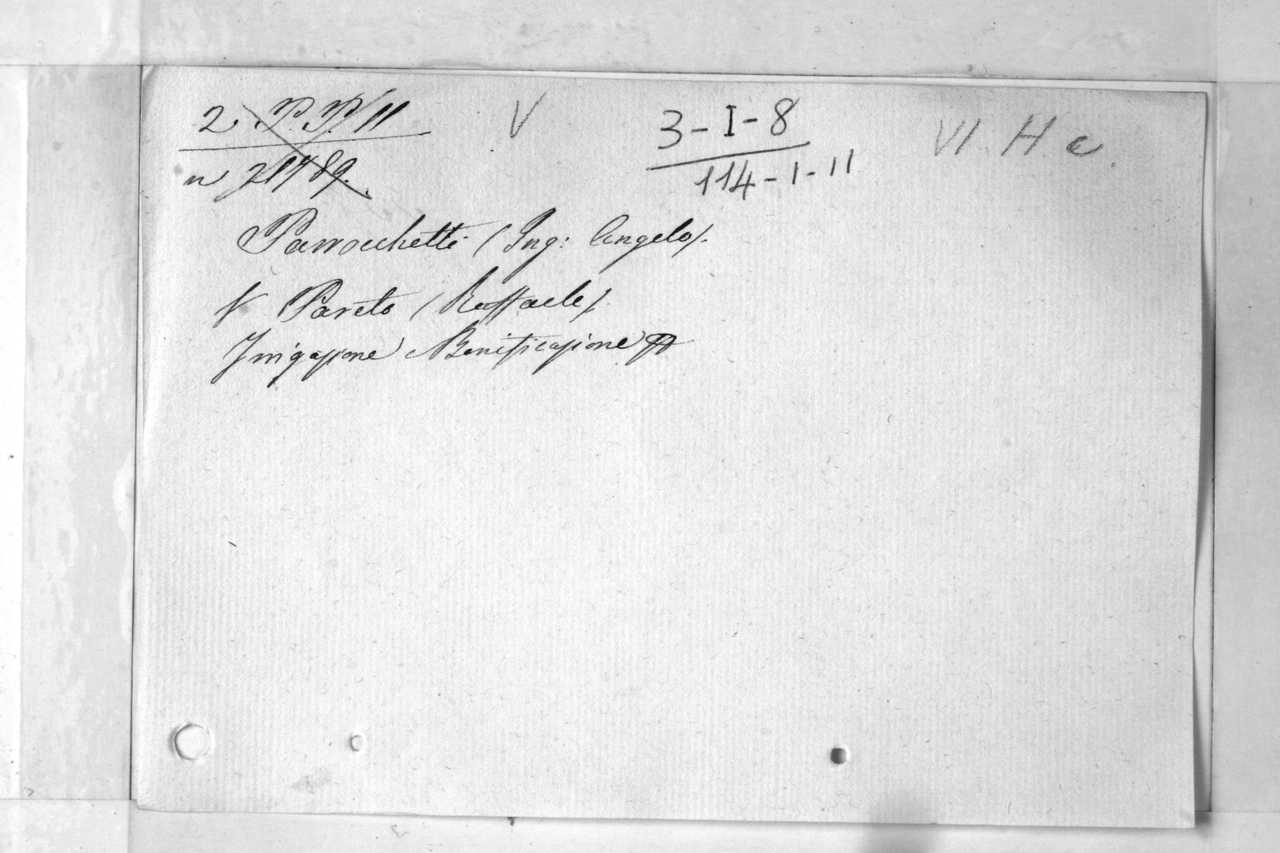 2. P.P. 11 V 3-I-8 VI. H c.
n 21789. 114-1-11
Parrochetti (Ing: Angelo).
V Pareto (Raffaele).
Irrigazione e Bonificazione